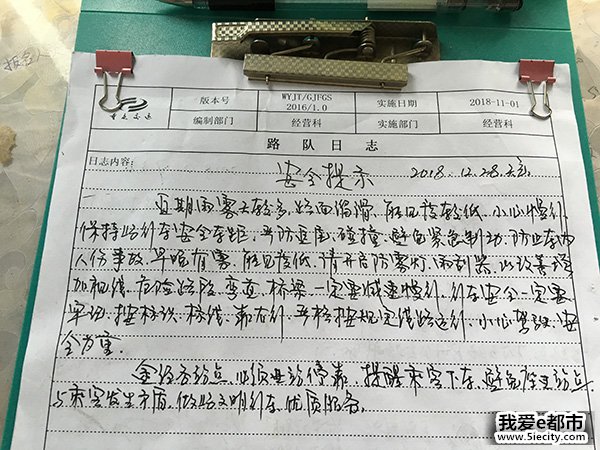 版本号 WYJT/GJFGS 2016/1.0 实施日期 2018-11-01
编制部门 经营科 实施部门 经营科
路队日志
日志内容:
安全提示 2018.12.28.
近期雨雾天较多,路面湿滑,能见度较低,小心慢行,
保持好行车安全车距,严防追尾,碰撞,避免紧急制动,防止车内
人伤事故,早晚有雾,能见度低,请开启防雾灯,雨刮器,以改善
加视线,危险路段,弯道,桥梁,一定要减速慢行,行车安全一定要
牢记,按标识,标线,靠右行,严格按规定线路运行,小心驾驶,安
全为重。
途经各站点,必须进站停靠,提醒乘客下车,避免
与乘客发生矛盾,做好文明行车,优质服务。
我爱e都市
www.5iecity.com